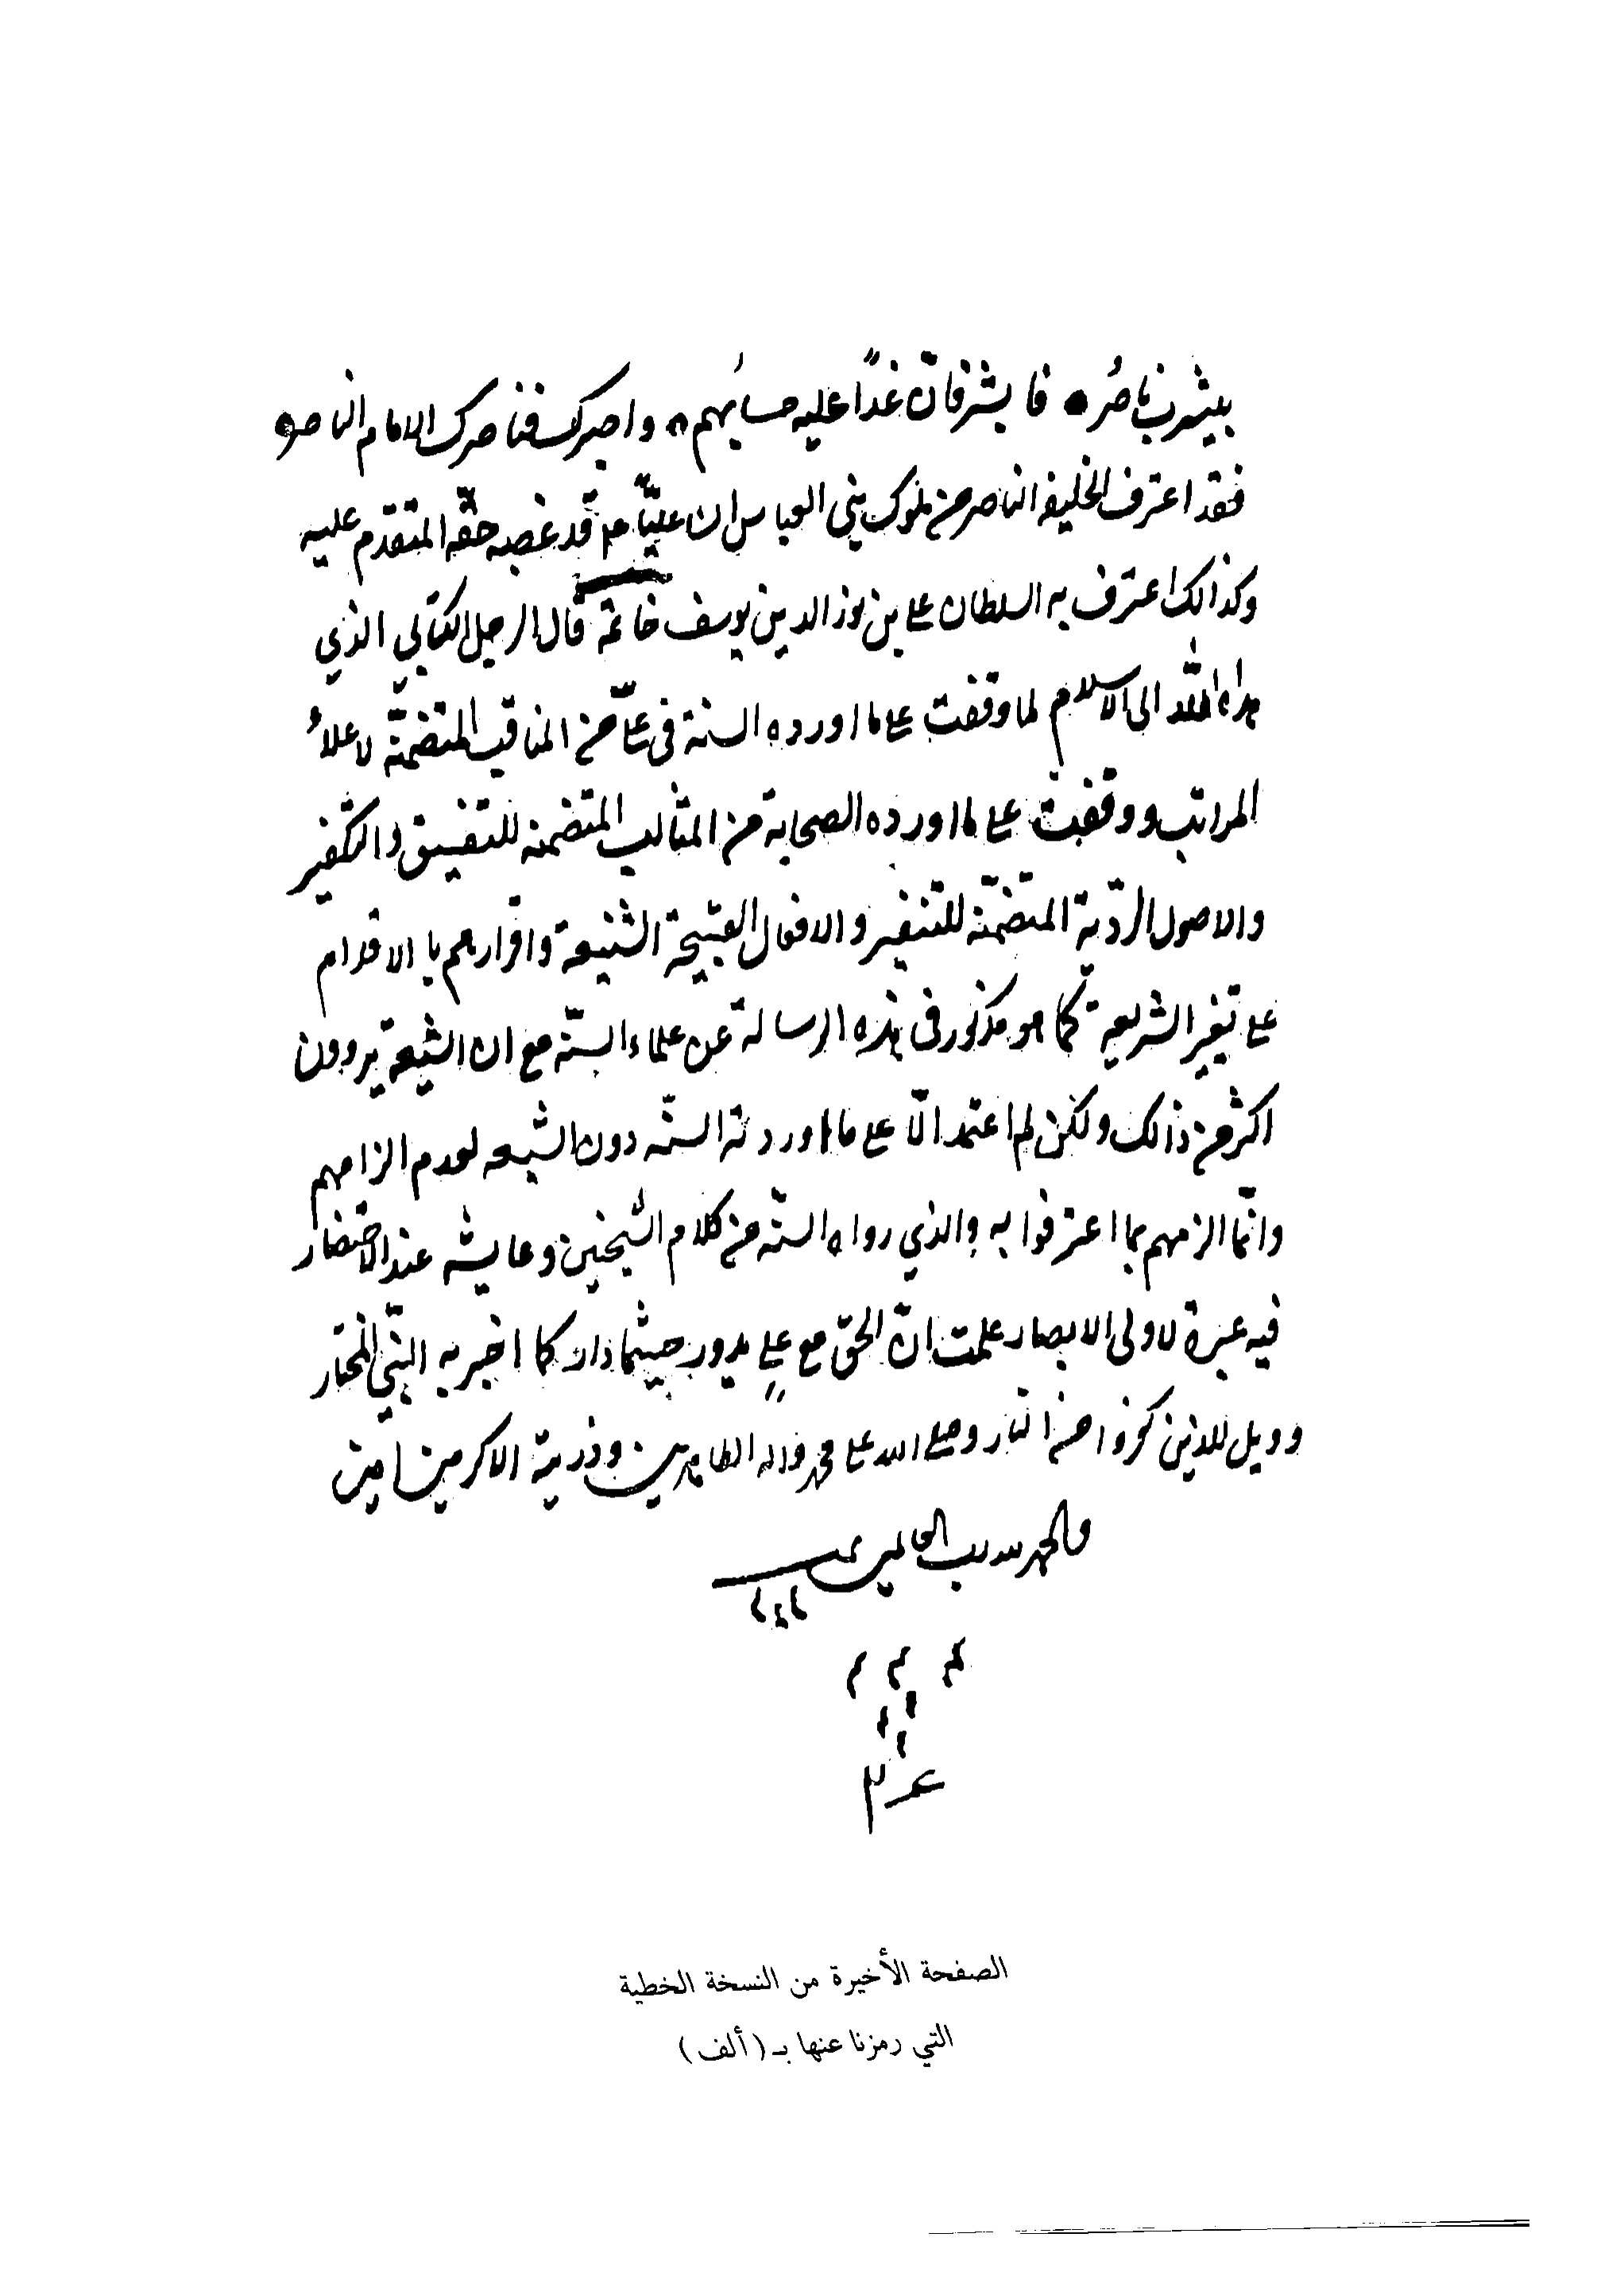 بيثرب ناصرُ • فابشر فانّ غدًا عليه حسابُهم ، واصبر فناصرك الامام الناصر
فقد اعترف الخليفة الناصر من ملوك بني العباس ان عليّاً ع م قد غصبه حقّه المتقدم عليه
وكذالك اعترف به السلطان علي بن نور الدين يوسف خاتمة قال الرجل الكتابي الذي
هداه الله الى الاسلام لما وقفت على ما اورده السنة في عليّ من المناقب المتضمّنة لاعلاءُ
المراتب ووقفت على ما اورده الصحابة من المثالب المتضمنه للتفسيق والتكفير
والاصول الرديّة المتضمّنة للتنفير والافعال القبيحة الشنيعة واقرارهم با الاقدام
على تغير الشريعة كما هو مذكور في هذه الرسالة عن علماء السنّة مع ان الشيعة يروون
اكثر من ذالك ولكن لم اعتمد الّا على ما اوردته السنّه دون الشيعه لعدم الزامهم
وانّما الزمهم بما اعترفوا به والذي رواه السنّه من كلام الشيخين وعايشه عند الاحتضار
فيه عبرة لاولى الابصار علمت انّ الحقّ مع عليٍ يدور حيثما دار كما اخبر به النبّي المختار
وويل للذين كفروا من النار وصلى الله على محمد واله الطاهرين وذرية الاكرمين امين
والحمد لله رب العالمين
الصفحة الأخيرة من النسخة الخطية
التي رمزنا عنها بـ (ألف)